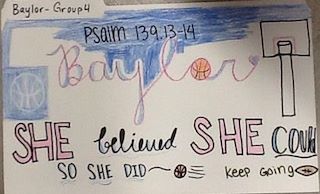 Baylor- Group 4
Psalm 139.13-14
Baylor
SHE believed SHE could
SO SHE DID
Keep Going